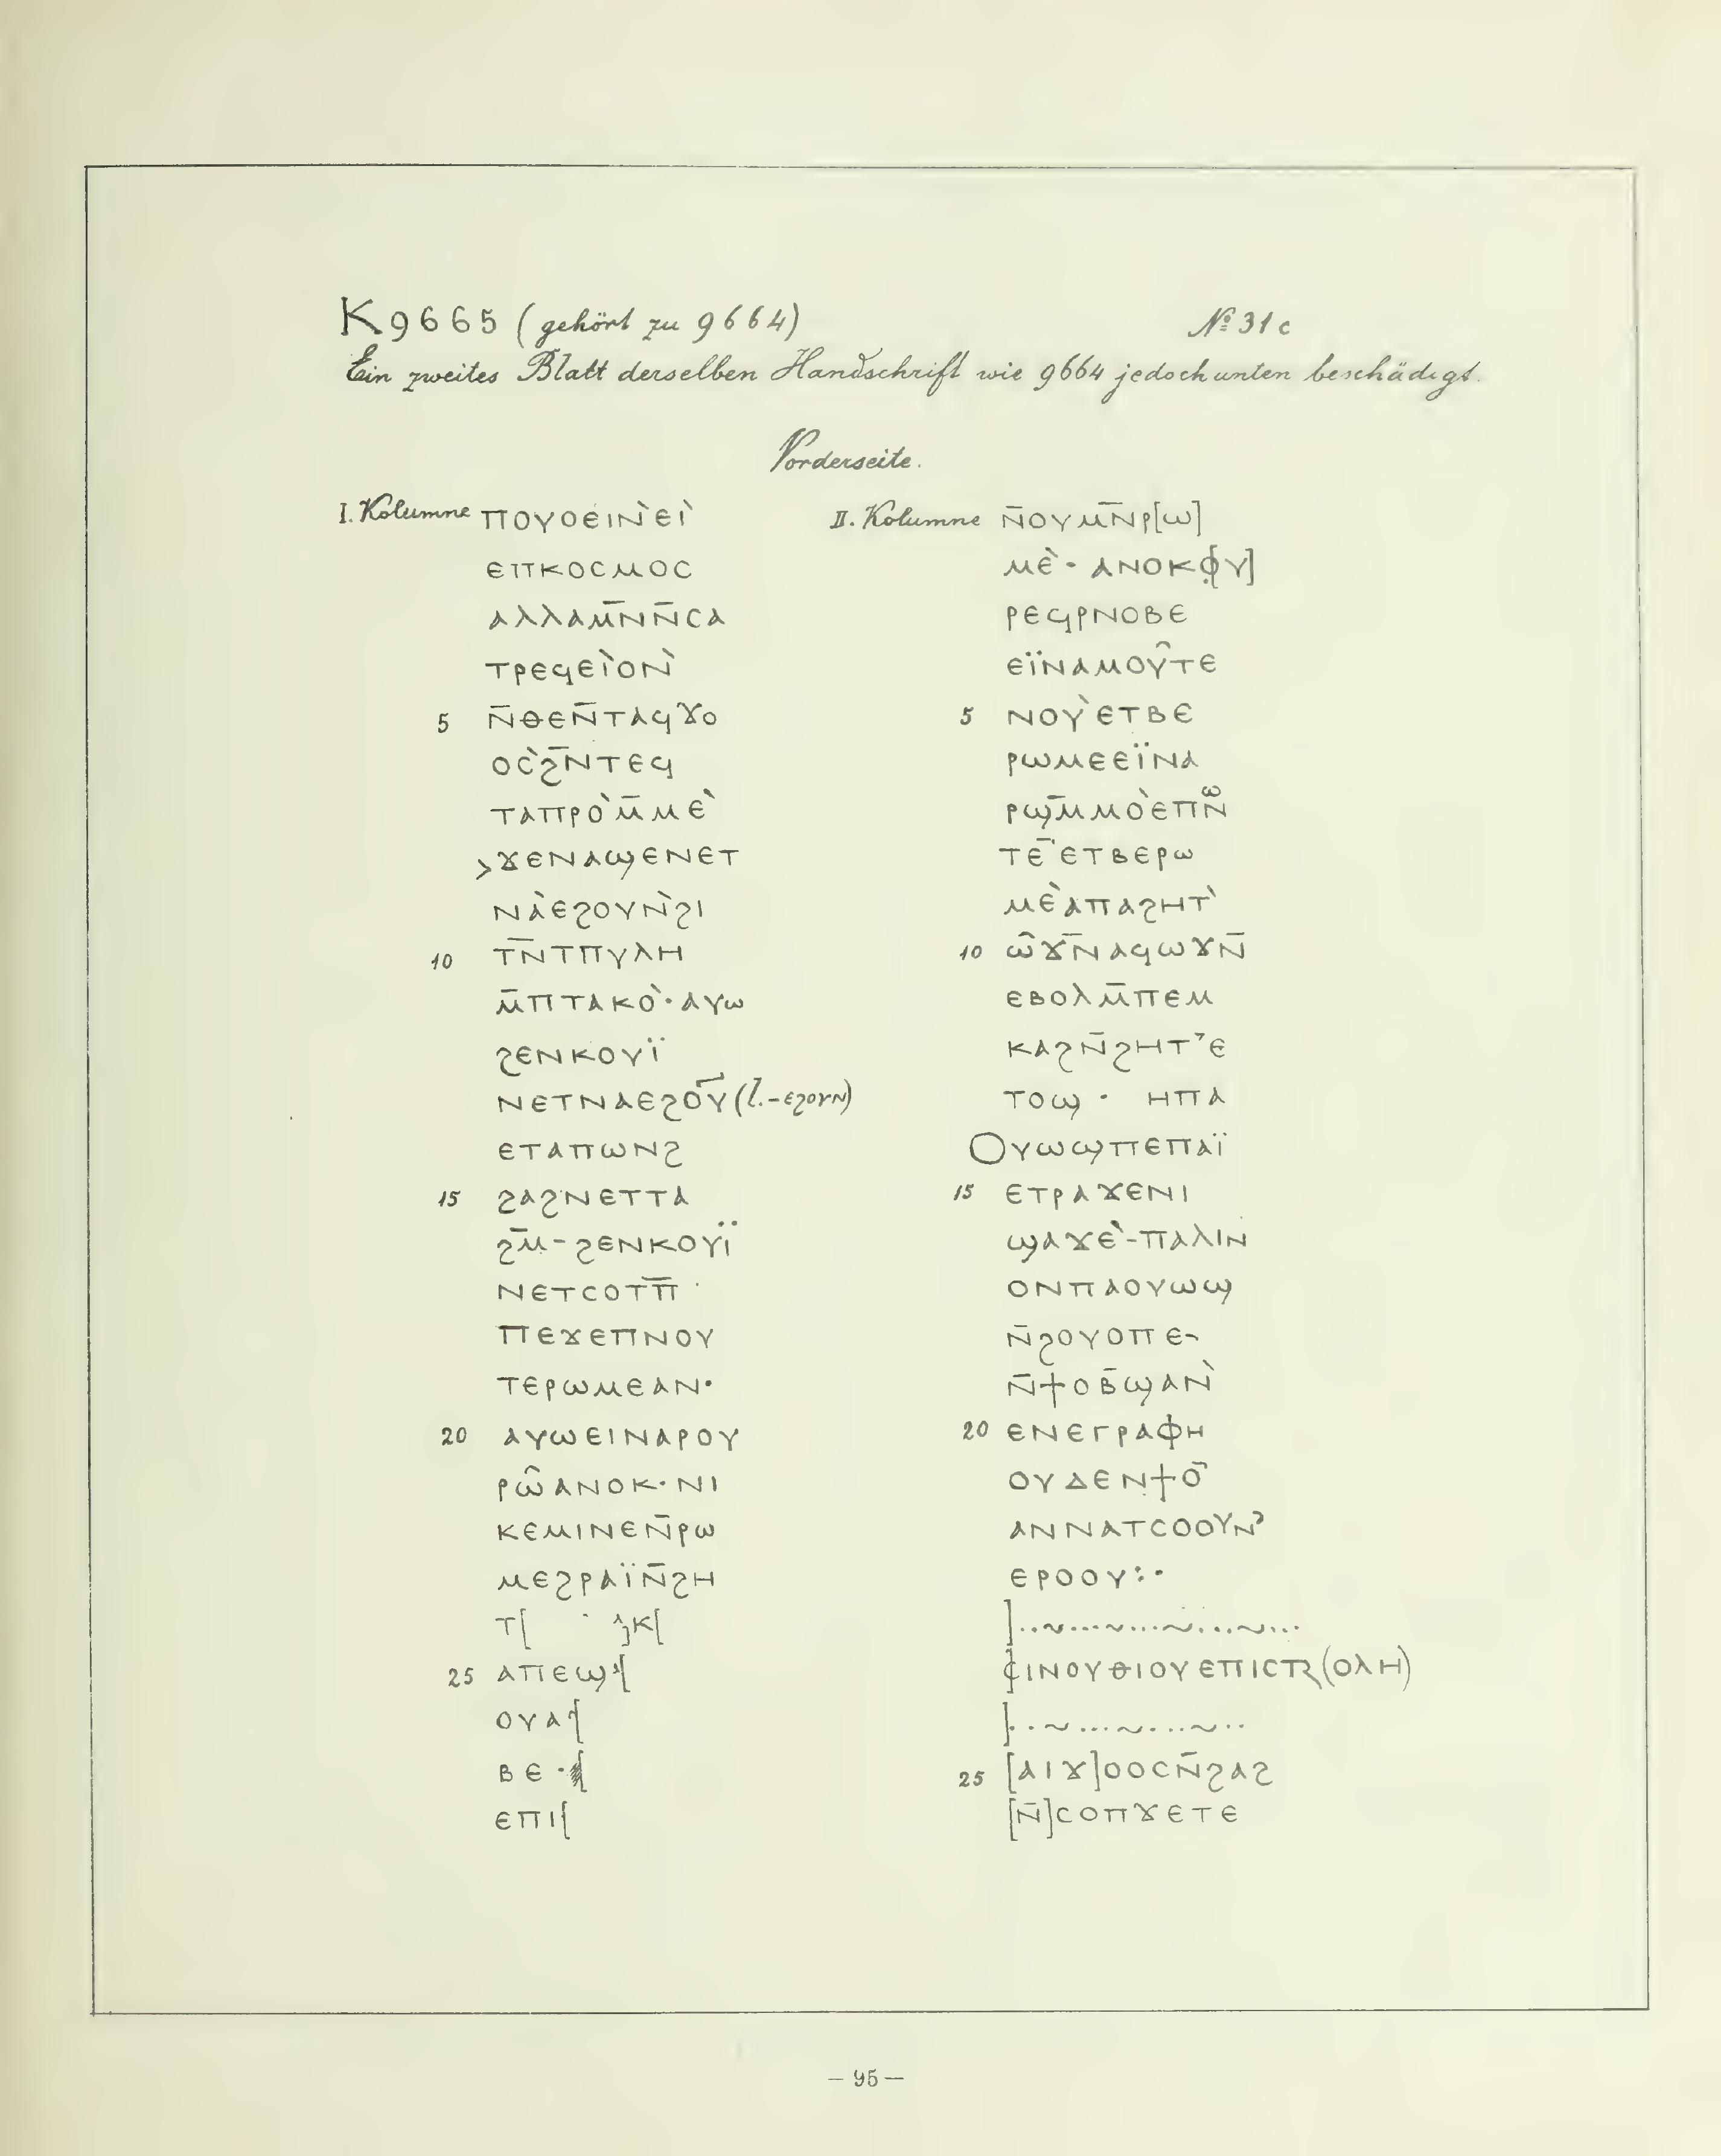 K 9665 (gehört zu 9664) № 31c
Ein zweites Blatt derselben Handschrift wie 9664 jedoch unten beschädigt.
Vorderseite.
I. Kolumne ⲠⲞⲨⲞⲈⲒⲚ̀ⲈⲒ̀
ⲈⲠⲔⲞⲤⲘⲞⲤ
ⲀⲖⲖⲀⲘ̅ⲚⲚ̅ⲤⲀ
ⲦⲢⲈϤⲈⲒ̀ⲞⲚ̀
5 Ⲛ̅ⲐⲈⲚ̅ⲦⲀϤϪⲞ
ⲞⲤ̀ϨⲚ̅ⲦⲈϤ
ⲦⲀⲠⲢⲞ̀Ⲙ̅ⲘⲈ̀
>ϪⲈⲚⲀϢⲈⲚⲈⲦ
ⲚⲀ̀ⲈϨⲞⲨⲚ̀ϨⲒ
10 ⲦⲚ̅ⲦⲠⲨⲖⲎ
Ⲙ̅ⲠⲦⲀⲔⲞ̀· ⲀⲨⲰ
ϨⲈⲚⲔⲞⲨⲒ̈
ⲚⲈⲦⲚⲀⲈϨⲞⲨ̅ (l. -ⲈϨⲞⲨⲚ)
ⲈⲦⲀⲠⲰⲚϨ
15 ϨⲀϨⲚⲈⲦⲦⲀ
ϨⲘ̅-ϨⲈⲚⲔⲞⲨⲒ̈
ⲚⲈⲦⲤⲞⲦⲠ̅
ⲠⲈϪⲈⲠⲚⲞⲨ
ⲦⲈⲢⲰⲘⲈⲀⲚ·
20 ⲀⲨⲰⲈⲒⲚⲀⲢⲞⲨ
ⲢⲰ̂ⲀⲚⲞⲔ·ⲚⲒ
ⲔⲈⲘⲒⲚⲈⲚ̅ⲢⲰ
ⲘⲈϨⲢⲀⲒ̈Ⲛ̅ϨⲎ
Ⲧ[ ]Ⲕ[
25 ⲀⲠⲈϢ[
ⲞⲨⲀ[
ⲂⲈ·[
ⲈⲠⲒ[
II. Kolumne Ⲛ̅ⲞⲨⲘ̅ⲚⲢ[Ⲱ]
ⲘⲈ̀· ⲀⲚⲞⲔⲪ[Ⲩ]
ⲢⲈϤⲢⲚⲞⲂⲈ
ⲈⲒ̈ⲚⲀⲘⲞⲨ̂ⲦⲈ
5 ⲚⲞⲨ̀ⲈⲦⲂⲈ
ⲢⲰⲘⲈⲈⲒ̈ⲚⲀ
ⲢϢ̅ⲘⲘⲞ̀ⲈⲠⲚ̅ⲱ
ⲦⲈ̅̀ⲈⲦⲂⲈⲢⲰ
ⲘⲈ̀ⲀⲠⲀϨⲎⲦ̀
10 Ⲱ̂ϪⲚ̅ⲀϤⲰϪⲚ̅
ⲈⲂⲞⲖⲘ̅ⲠⲈⲘ
ⲔⲀϨⲚ̅ϨⲎⲦ̓Ⲉ
ⲦⲞϢ · ⲎⲠⲀ
ⲞⲨⲰϢⲠⲈⲠⲀⲒ̈
15 ⲈⲦⲢⲀϪⲈⲚⲒ
ϢⲀϪⲈ̀-ⲠⲀⲖⲒⲚ
ⲞⲚⲠⲀⲞⲨⲰϢ
Ⲛ̅ϨⲞⲨⲞⲠⲈ-
Ⲛ̅ϮⲞⲂ̅ϢⲀⲚ̀
20 ⲈⲚⲈⲄⲢⲀⲪⲎ
ⲞⲨⲆⲈⲚϮⲞ̅
ⲀⲚⲚⲀⲦⲤⲞⲞⲨⲚ̓
ⲈⲢⲞⲞⲨ:·
]..~...~...~...~...
ⲤⲒⲚⲞⲨⲐⲒⲞⲨⲈⲠⲒⲤⲦⲢ(ⲞⲖⲎ)
]··~...~...~··
25 [ⲀⲒϪ]ⲞⲞⲤⲚ̅ϨⲀϨ
[Ⲛ̅]ⲤⲞⲠϪⲈⲦⲈ
— 95 —